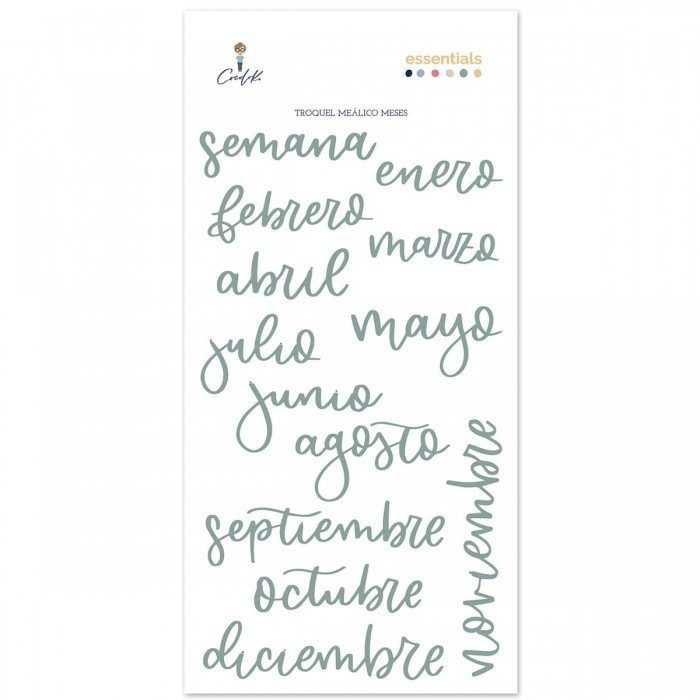 CredeKa
essentials
TROQUEL MEÁLICO MESES
semana
enero
febrero
marzo
abril
mayo
julio
junio
agosto
noviembre
septiembre
octubre
diciembre